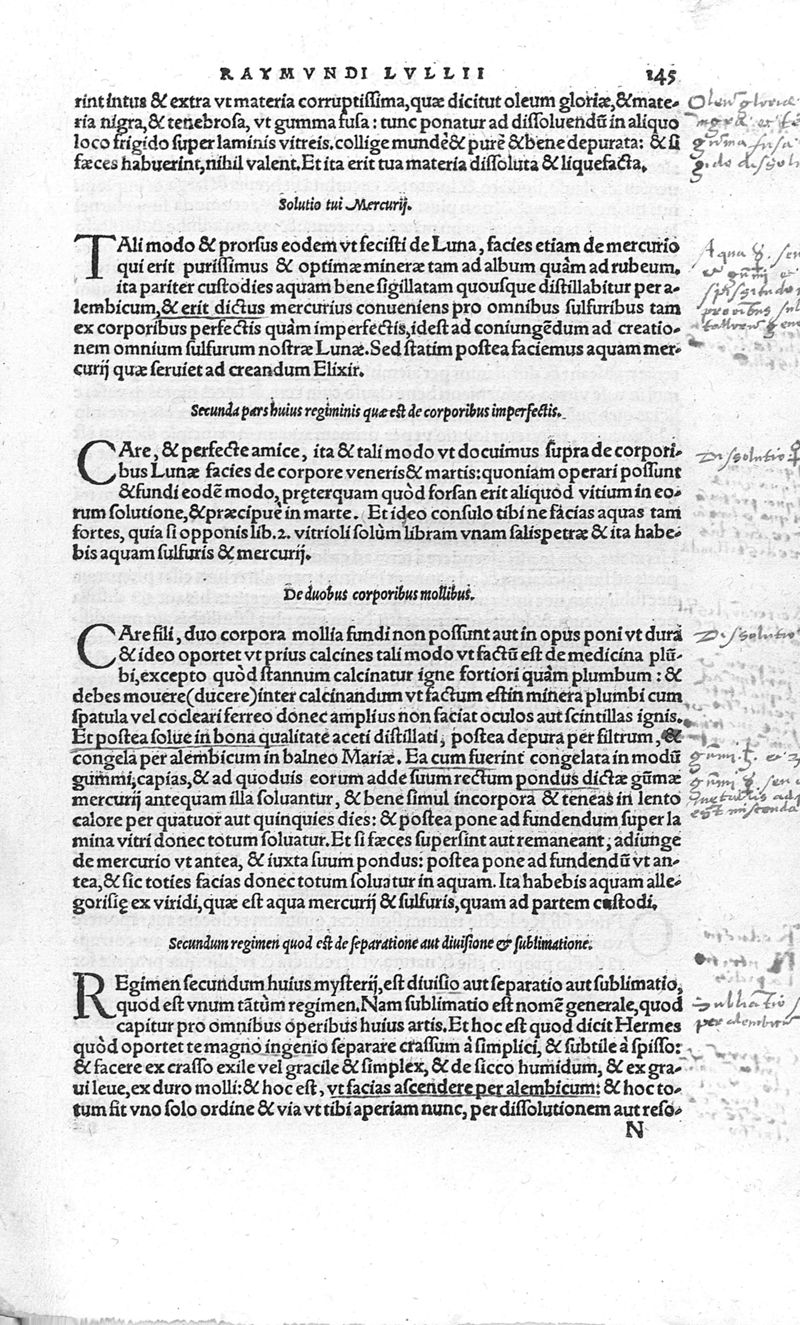 RAYMVNDI LVLLII 145
rint intus & extra vt materia corruptissima, quæ dicitut oleum gloriæ, & mate-
ria nigra, & tenebrosa, vt gumma fusa: tunc ponatur ad dissoluendū in aliquo
loco frigido super laminis vitreis. collige mundè & purè & bene depurata: & si
fæces habuerint, nihil valent. Et ita erit tua materia dissoluta & liquefacta.
Solutio tui Mercurij.
TAli modo & prorsus eodem vt fecisti de Luna, facies etiam de mercurio
qui erit purissimus & optimæ mineræ tam ad album quàm ad rubeum.
ita pariter custodies aquam bene sigillatam quousque distillabitur per a-
lembicum, & erit dictus mercurius conueniens pro omnibus sulfuribus tam
ex corporibus perfectis quàm imperfectis, id est ad coniungēdum ad creatio-
nem omnium sulfurum nostræ Lunæ. Sed statim postea faciemus aquam mer-
curij quæ seruiet ad creandum Elixir.
Secunda pars huius regiminis quæ est de corporibus imperfectis.
CAre, & perfecte amice, ita & tali modo vt docuimus supra de corpori-
bus Lunæ facies de corpore veneris & martis: quoniam operari possunt
& fundi eodē modo, pręterquam quòd forsan erit aliquod vitium in eo-
rum solutione, & præcipuè in marte. Et ideo consulo tibi ne facias aquas tam
fortes, quia si opponis lib. 2. vitrioli solùm libram vnam salispetræ & ita habe-
bis aquam sulfuris & mercurij.
De duobus corporibus mollibus.
CAre fili, duo corpora mollia fundi non possunt aut in opus poni vt dura
& ideo oportet vt prius calcines tali modo vt factū est de medicina plū-
bi, excepto quòd stannum calcinatur igne fortiori quàm plumbum: &
debes mouere (ducere) inter calcinandum vt factum est in minera plumbi cum
spatula vel cocleari ferreo donec amplius non faciat oculos aut scintillas ignis.
Et postea solue in bona qualitate aceti distillati, postea depura per filtrum, &
congela per alembicum in balneo Mariæ. Ea cum fuerint congelata in modū
gummi, capias, & ad quoduis eorum adde suum rectum pondus dictæ gūmæ
mercurij antequam illa soluantur, & bene simul incorpora & teneas in lento
calore per quatuor aut quinquies dies: & postea pone ad fundendum super la
mina vitri donec totum soluatur. Et si fæces supersint aut remaneant, adiunge
de mercurio vt antea, & iuxta suum pondus: postea pone ad fundendū vt an-
tea, & sic toties facias donec totum soluatur in aquam. Ita habebis aquam alle-
gorisię ex viridi, quæ est aqua mercurij & sulfuris, quam ad partem custodi.
Secundum regimen quod est de separatione aut diuisione & sublimatione.
REgimen secundum huius mysterij, est diuisio aut separatio aut sublimatio,
quod est vnum tātùm regimen. Nam sublimatio est nomē generale, quod
capitur pro omnibus operibus huius artis. Et hoc est quod dicit Hermes
quòd oportet te magno ingenio separare crassum à simplici, & subtile à spisso:
& facere ex crasso exile vel gracile & simplex, & de sicco humidum, & ex gra-
ui leue, ex duro molli: & hoc est, vt facias ascendere per alembicum: & hoc to-
tum fit vno solo ordine & via vt tibi aperiam nunc, per dissolutionem aut reso-
N